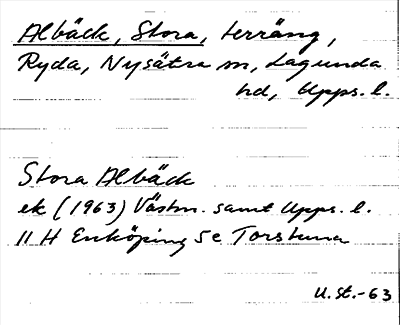 Albäck, Stora, terräng,
Ryda, Nysätra sn, Lagunda
hd, Upps. l.
Stora Albäck
ek (1963) Västm. samt Upps. l.
11 H Enköping 5 e Torstuna
U. St. -63